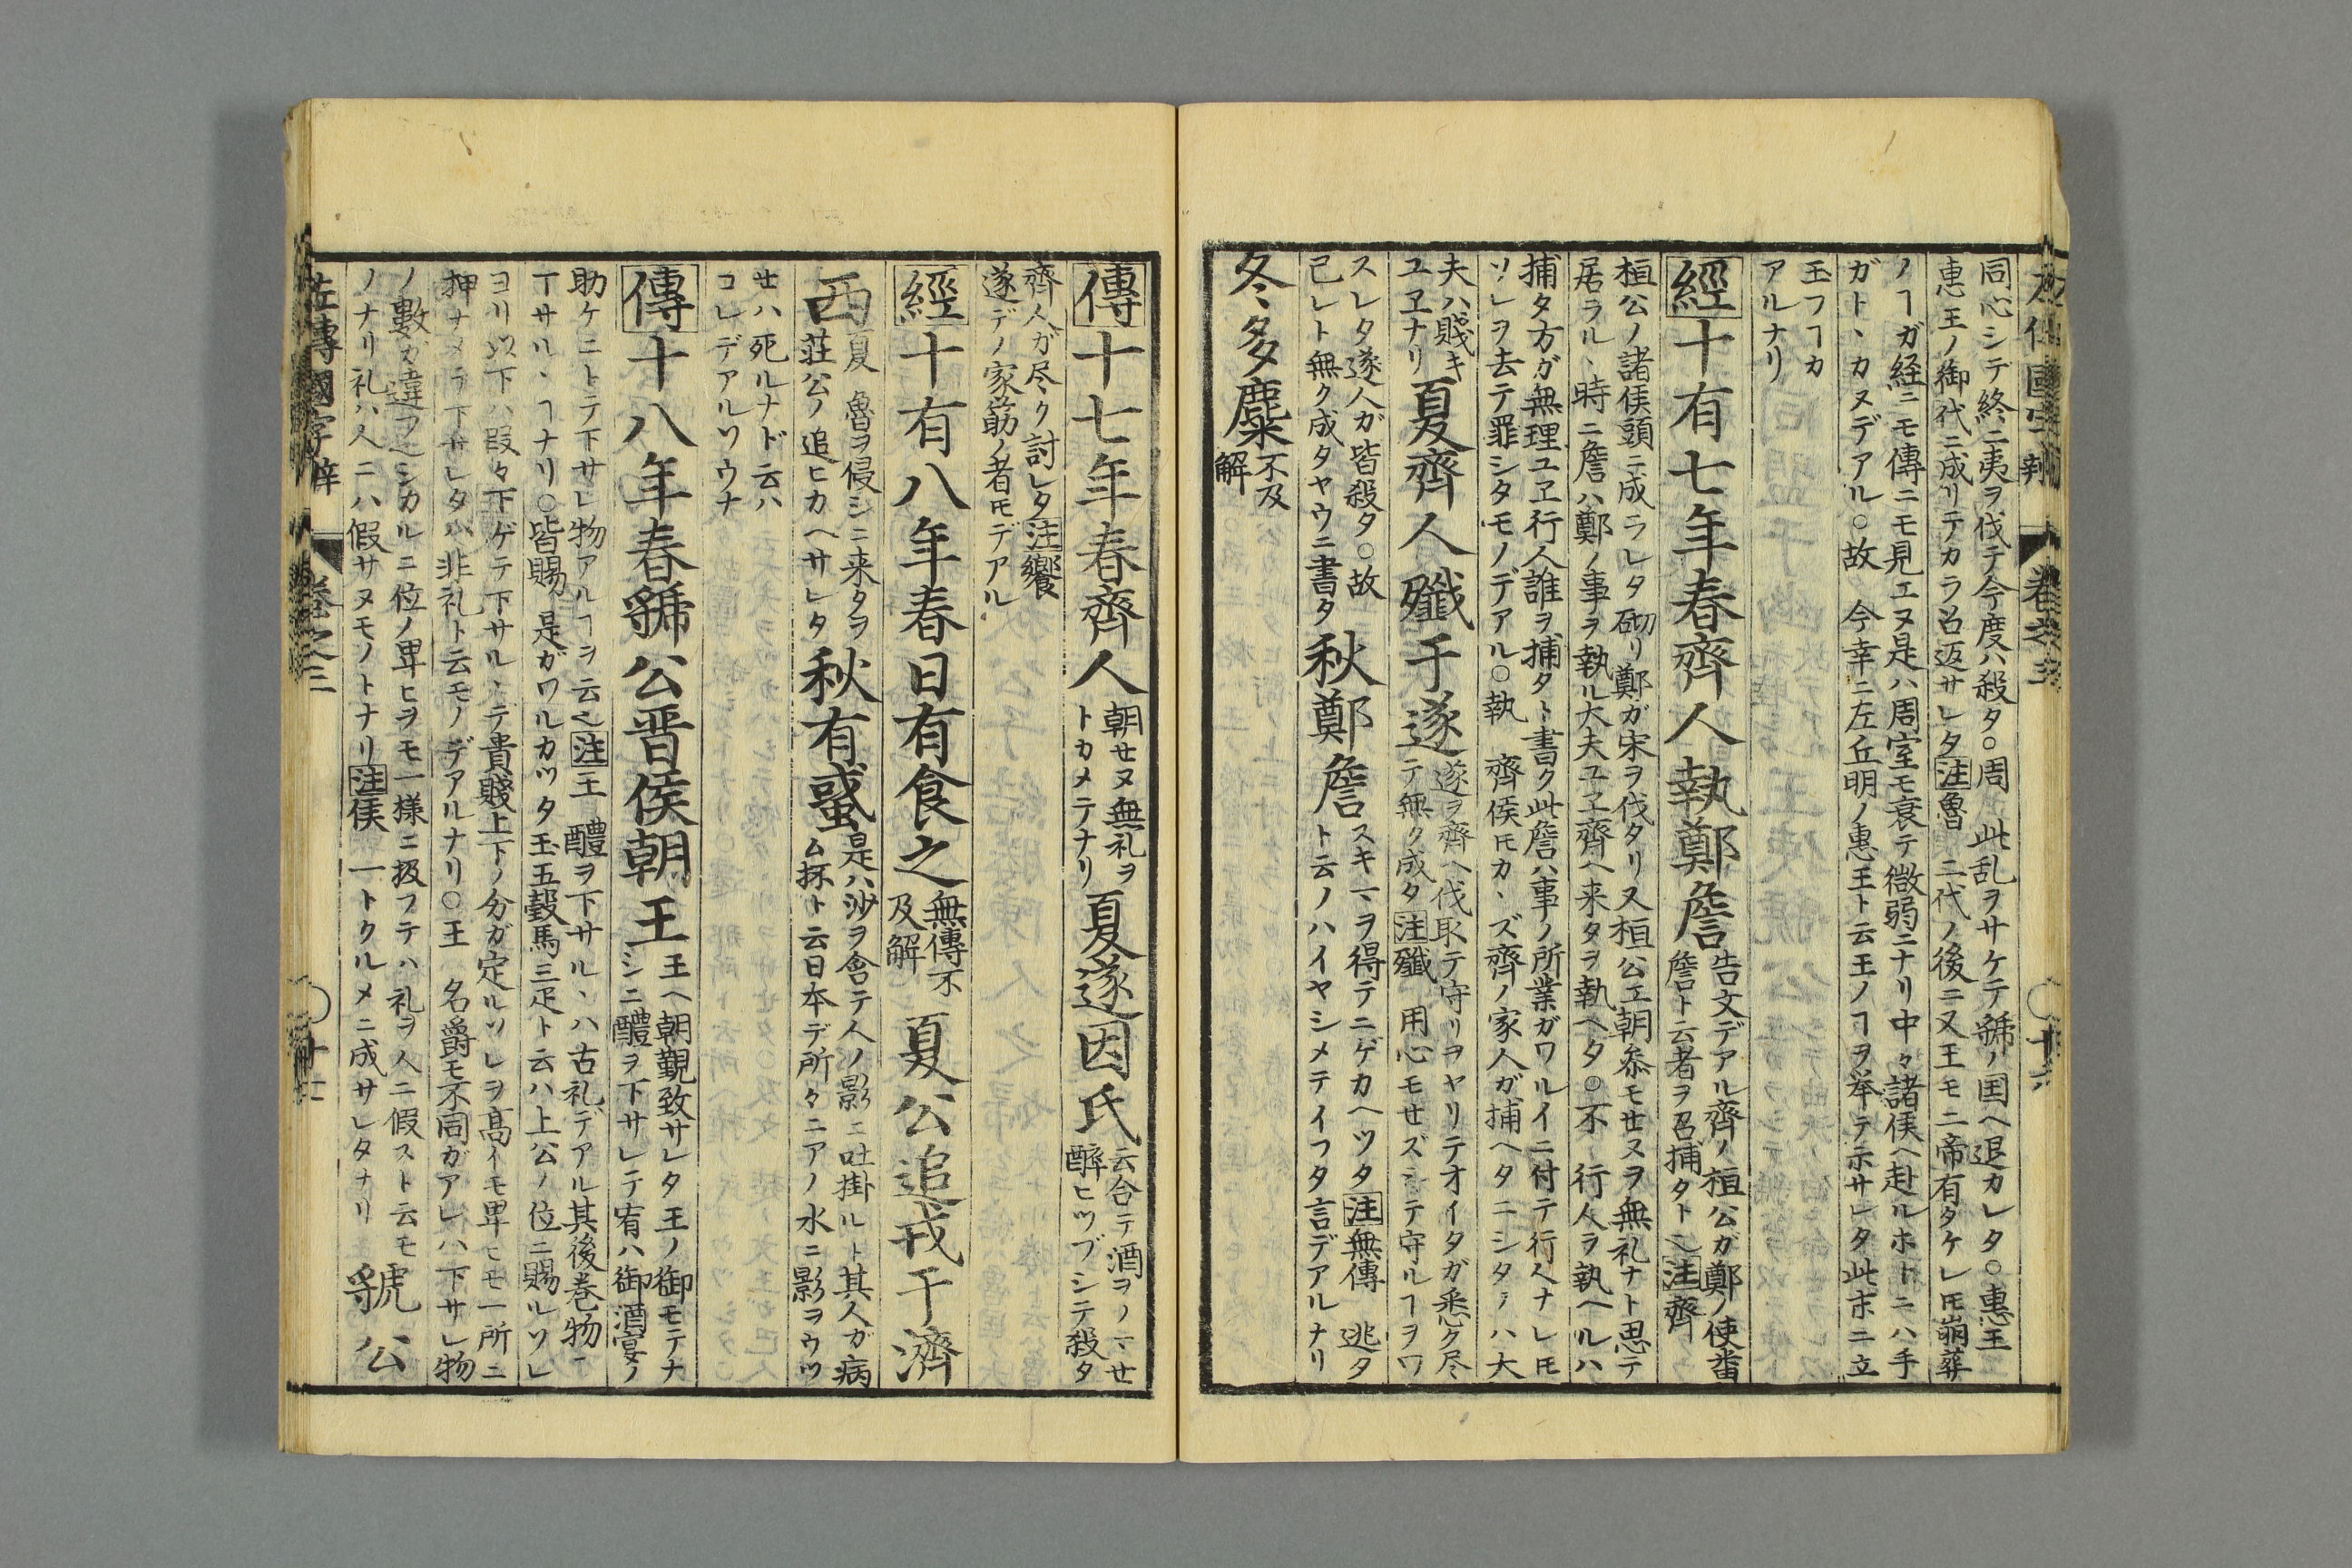 左傳國字辯 卷之三 ○十六
同心シテ終ニ夷ヲ伐テ今度ハ殺タ○周 此乱ヲサケテ虢ノ国ヘ退カレタ○惠王
惠王ノ御代ニ成リテカラ呂返サレタ注魯 三代ノ後ニ又王モ二帝有タケレ𪜈崩葬
ノヿガ経ニモ傳ニモ見エヌ是ハ周室モ衰テ微弱ニナリ中々諸侯ヘ赴ルホトニハ手
ガトヽカヌデアル○故 今幸ニ左丘明ノ惠王ト云王ノヿヲ挙テ示サレタ此ホニ立
玉フヿカ
アルナリ
經十有七年春齊人執鄭詹
告文デアル齊ノ桓公ガ鄭ノ使番
詹ト云者ヲ召捕タト也注齊
桓公ノ諸侯頭ニ成ラレタ砌リ鄭ガ宋ヲ伐タリ又桓公エ朝叅モせヌヲ無礼ナト思テ
居ラルヽ時ニ詹ハ鄭ノ事ヲ執ル大夫ユヱ齊ヘ来タヲ執ヘタ○不 行人ヲ執ヘルハ
捕タ方ガ無理ユヱ行人誰ヲ捕タト書ク此詹ハ事ノ所業ガワルイニ付テ行人ナレ𪜈
ソレヲ去テ罪シタモノデアル○執 齊侯𪜈カヽズ齊ノ家人ガ捕ヘタニシタハ大
夫ハ賤キ
ユヱナリ
夏齊人殲于遂
遂ヲ齊ヘ伐取テ守リヲヤリテオイタガ悉ク尽
テ無ク成タ注殲 用心モせズシテ守ルヿヲワ
スレタ遂人ガ皆殺タ○故
己レト無ク成タヤウニ書タ
秋鄭詹
スキマヲ得テニゲカヘツタ注無傳 逃タ
ト云ノハイヤシメテイフタ言デアルナリ
冬多麋
不及
解
傳十七年春齊人
朝せヌ無礼ヲ
トカメテナリ
夏遂因氏
云合テ酒ヲノマせ
醉ヒツブシテ殺タ
齊人ガ尽ク討レタ注饗
遂デノ家筋ノ者𪜈デアル
經十有八年春日有食之
無傳不
及解
夏公追戎于濟
西
夏 魯ヲ侵シニ来タヲ
荘公ノ追ヒカヘサレタ
秋有蜮
是ハ沙ヲ含テ人ノ影ニ吐掛ルト其人ガ病
ム抔ト云日本デ所々ニアノ水ニ影ヲウツ
せハ死ルナド云ハ
コレデアルソウナ
傳十八年春虢公晋侯朝王
王ヘ朝覲致サレタ王ノ御モテナ
シニ醴ヲ下サレテ宥ハ御酒宴ノ
助ケニトテ下サレ物アルヿヲ云也注王 醴ヲ下サルヽハ古礼デアル其後巻物ニ
下サルヽヿナリ○皆賜 是ガワルカツタ玉五瑴馬三疋ト云ハ上公ノ位ニ賜ルソレ
ヨリ以下ハ段々下ゲテ下サルヽテ貴賤上下ノ分ガ定ルソレヲ高イモ卑ヒモ一所ニ
押ナメテ下サレタハ非礼ト云モノデアルナリ○王 名爵モ不同ガアレハ下サレ物
ノ數ガ違フ也シカルニ位ノ卑ヒヲモ一様ニ扱フテハ礼ヲ人ニ假スト云モ
ノナリ礼ハ人ニハ假サヌモノトナリ注侯 一トクルメニ成サレタナリ
虢公
左傳國字辯 卷之三 ○十七